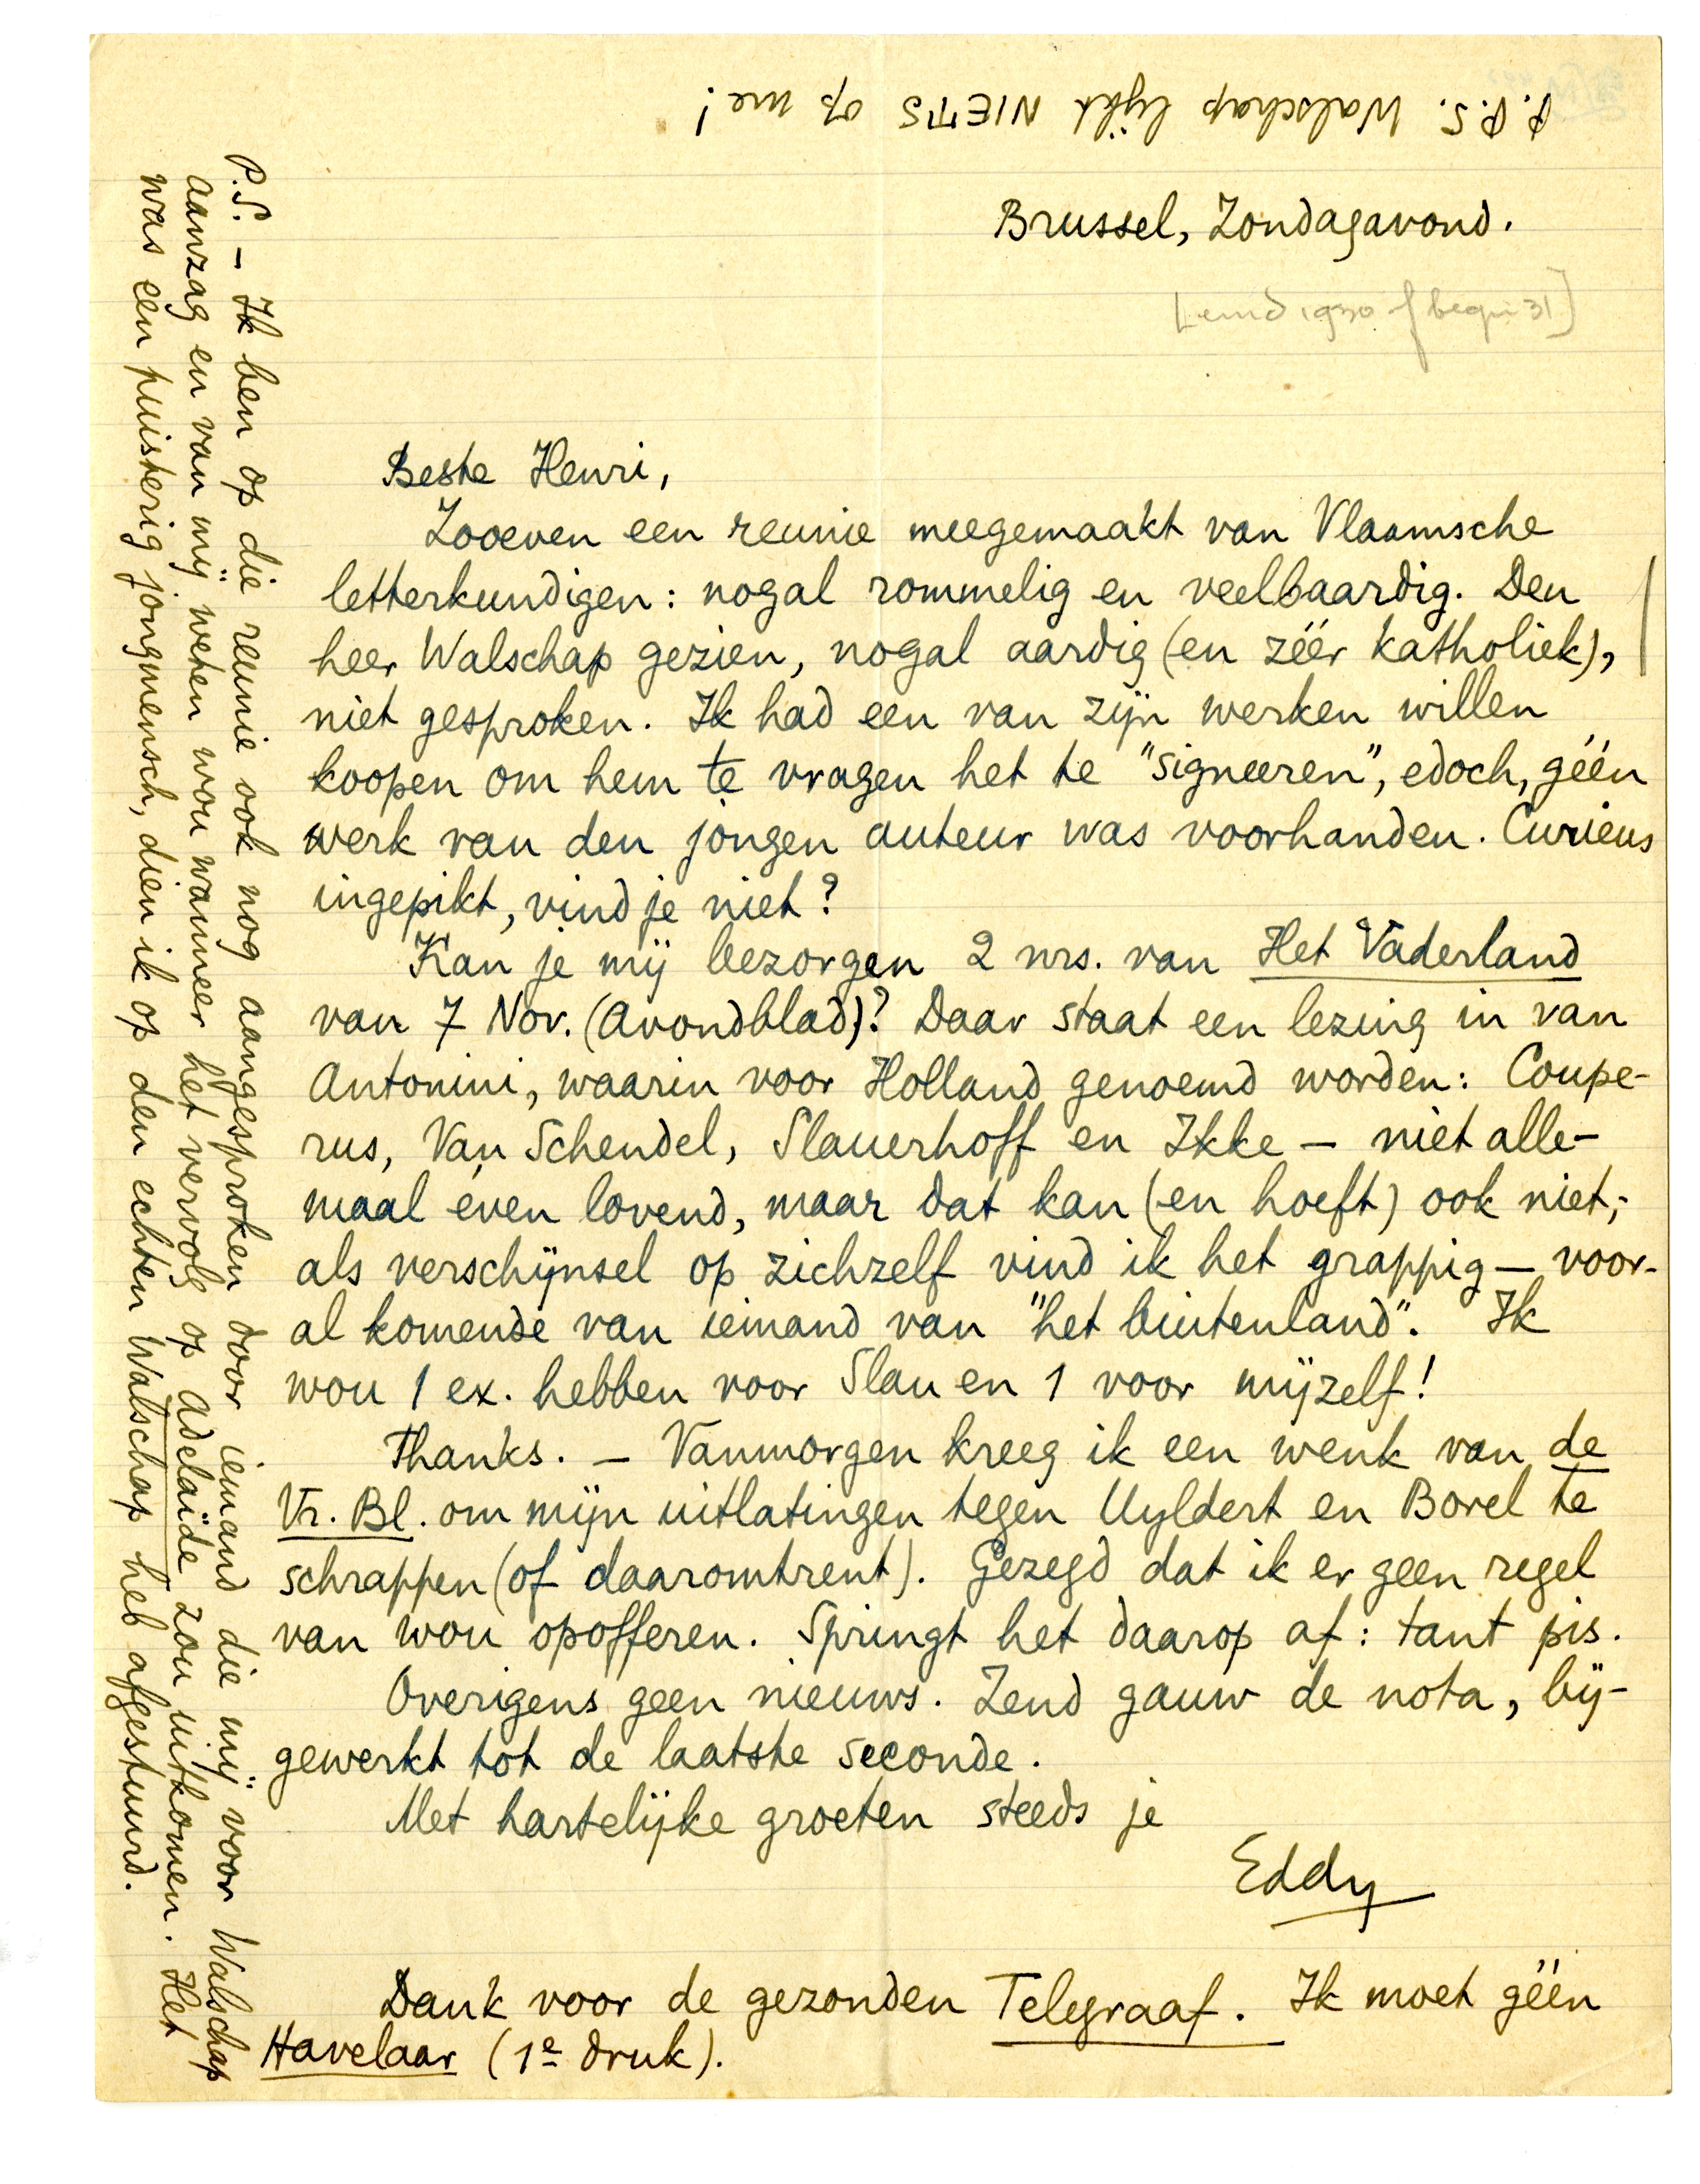 Brussel, Zondagavond.
[eind 1930 of begin 31]
Beste Henri,
Zooeven een reunie meegemaakt van Vlaamsche
letterkundigen: nogal rommelig en veelbaardig. Den
heer Walschap gezien, nogal aardig (en zéér katholiek),
niet gesproken. Ik had een van zijn werken willen
koopen om hem te vragen het te "signeeren", edoch, géén
werk van den jongen auteur was voorhanden. Curieus
ingepikt, vind je niet?
Kan je mij bezorgen 2 nrs. van Het Vaderland
van 7 Nov. (Avondblad)? Daar staat een lezing in van
Antonini, waarin voor Holland genoemd worden: Coupe-
rus, Van Schendel, Slauerhoff en Ikke — niet alle-
maal even lovend, maar dat kan (en hoeft) ook niet;
als verschijnsel op zichzelf vind ik het grappig — voor-
al komende van iemand van "het buitenland". Ik
wou 1 ex. hebben voor Slau en 1 voor mijzelf!
Thanks. — Vanmorgen kreeg ik een wenk van de
Vr. Bl. om mijn uitlatingen tegen Uyldert en Borel te
schrappen (of daaromtrent). Gezegd dat ik er geen regel
van wou opofferen. Springt het daarop af: tant pis.
Overigens geen nieuws. Zend gauw de nota, bij-
gewerkt tot de laatste seconde.
Met hartelijke groeten steeds je
Eddy
Dank voor de gezonden Telegraaf. Ik moet géén
Havelaar (1e druk).
P.S. — Ik ben op die reunie ook nog aangesproken door iemand die mij voor Walschap
aanzag en van mij weten wou wanneer het vervolg op Adelaïde zou uitkomen. Het
was een puisterig jongmensch, dien ik op den echten Walschap heb afgestuurd.
P.P.S. Walschap lijkt NIETS op me!